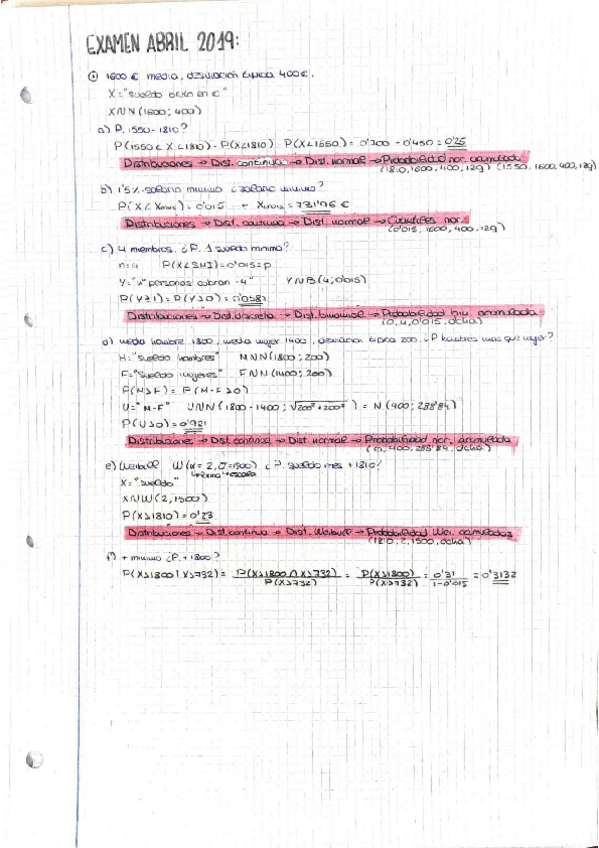 EXAMEN ABRIL 2019:
① 1600 € media, desviación típica 400 €.
X = "sueldo bruto en €"
X∿N (1600; 400)
a) P. 1550 - 1810?
P(1550 < X < 1810) = P(X<1810) - P(X<1550) = 0'700 - 0'450 = 0'25
Distribuciones → Dist. continua → Dist. normal → Probabilidad nor. acumulada
(1810, 1600, 400, izq) (1550, 1600, 400, izq)
b) 1'5% salario mínimo ¿salario mínimo?
P(X < Xmin) = 0'015 → Xmin = 731'96 €
Distribuciones → Dist. continua → Dist. normal → Cuantiles nor.
(0'015, 1600, 400, izq)
c) 4 miembros. ¿P. 1 sueldo mínimo?
n=4 P(X<SMI) = 0'015 = p
Y = "nº personas cobran -4" Y∿B (4; 0'015)
P(Y≥1) = P(Y>0) = 0'0587
Distribuciones → Dist. discreta → Dist. binomial → Probabilidad bin. acumulada
(0, 4, 0'015, dcha)
d) media hombre 1800, media mujer 1400, desviación típica 200. ¿P hombres más que mujer?
M = "sueldo hombres" M∿N (1800; 200)
F = "sueldo mujeres" F∿N (1400; 200)
P(M>F) = P(M-F>0)
U = "M-F" U∿N (1800 - 1400; √200² + 200²) = N (400; 288'84)
P(U>0) = 0'921
Distribuciones → Dist. continua → Dist. normal → Probabilidad nor. acumulada
(0, 400, 288'84, dcha)
e) Weibull W (α = 2, σ = 1500) ¿P. sueldo mes +1810?
forma escala
X = "sueldo"
X∿W (2, 1500)
P(X>1810) = 0'23
Distribuciones → Dist. continua → Dist. Weibull → Probabilidad Wei. acumuladas
(1810, 2, 1500, dcha)
f) + mínimo ¿P. +1800?
P(X>1800 | X>732) = P(X>1800 ∩ X>732) / P(X>732) = P(X>1800) / P(X>732) = 0'31 / 1-0'015 = 0'3132